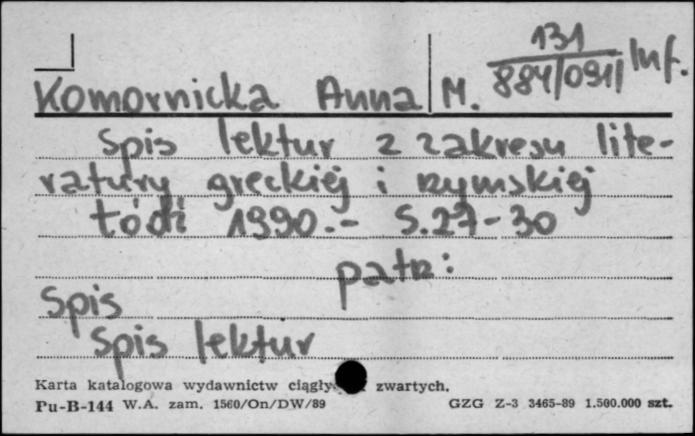 131
884/091/ Inf.
Komornicka Anna M.
Spis lektur z zakresu lite-
ratury greckiej i rzymskiej
Łódź 1990.- S.27-30
patrz:
Spis
Spis lektur
Karta katalogowa wydawnictw ciągły zwartych.
Pu-B-144 W.A. zam. 1560/On/DW/89 GZG Z-3 3465-89 1.500.000 szt.